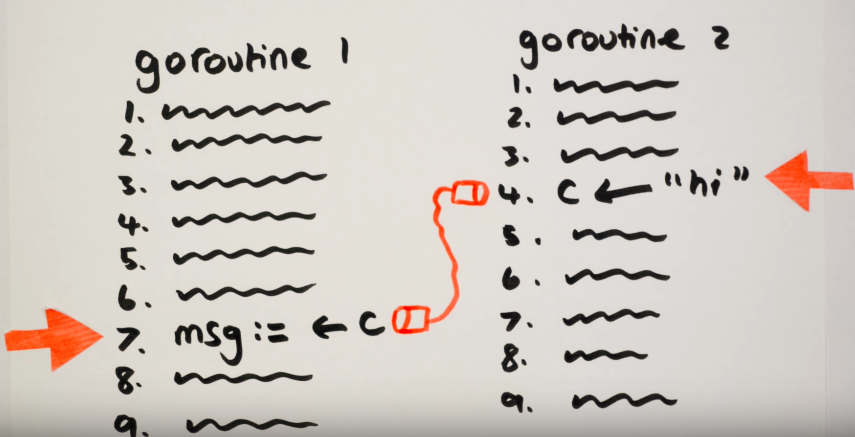 goroutine 1
1.
2.
3.
4.
5.
6.
7. msg := ← c
8.
9.
goroutine 2
1.
2.
3.
4. c ← "hi"
5.
6.
7.
8.
9.